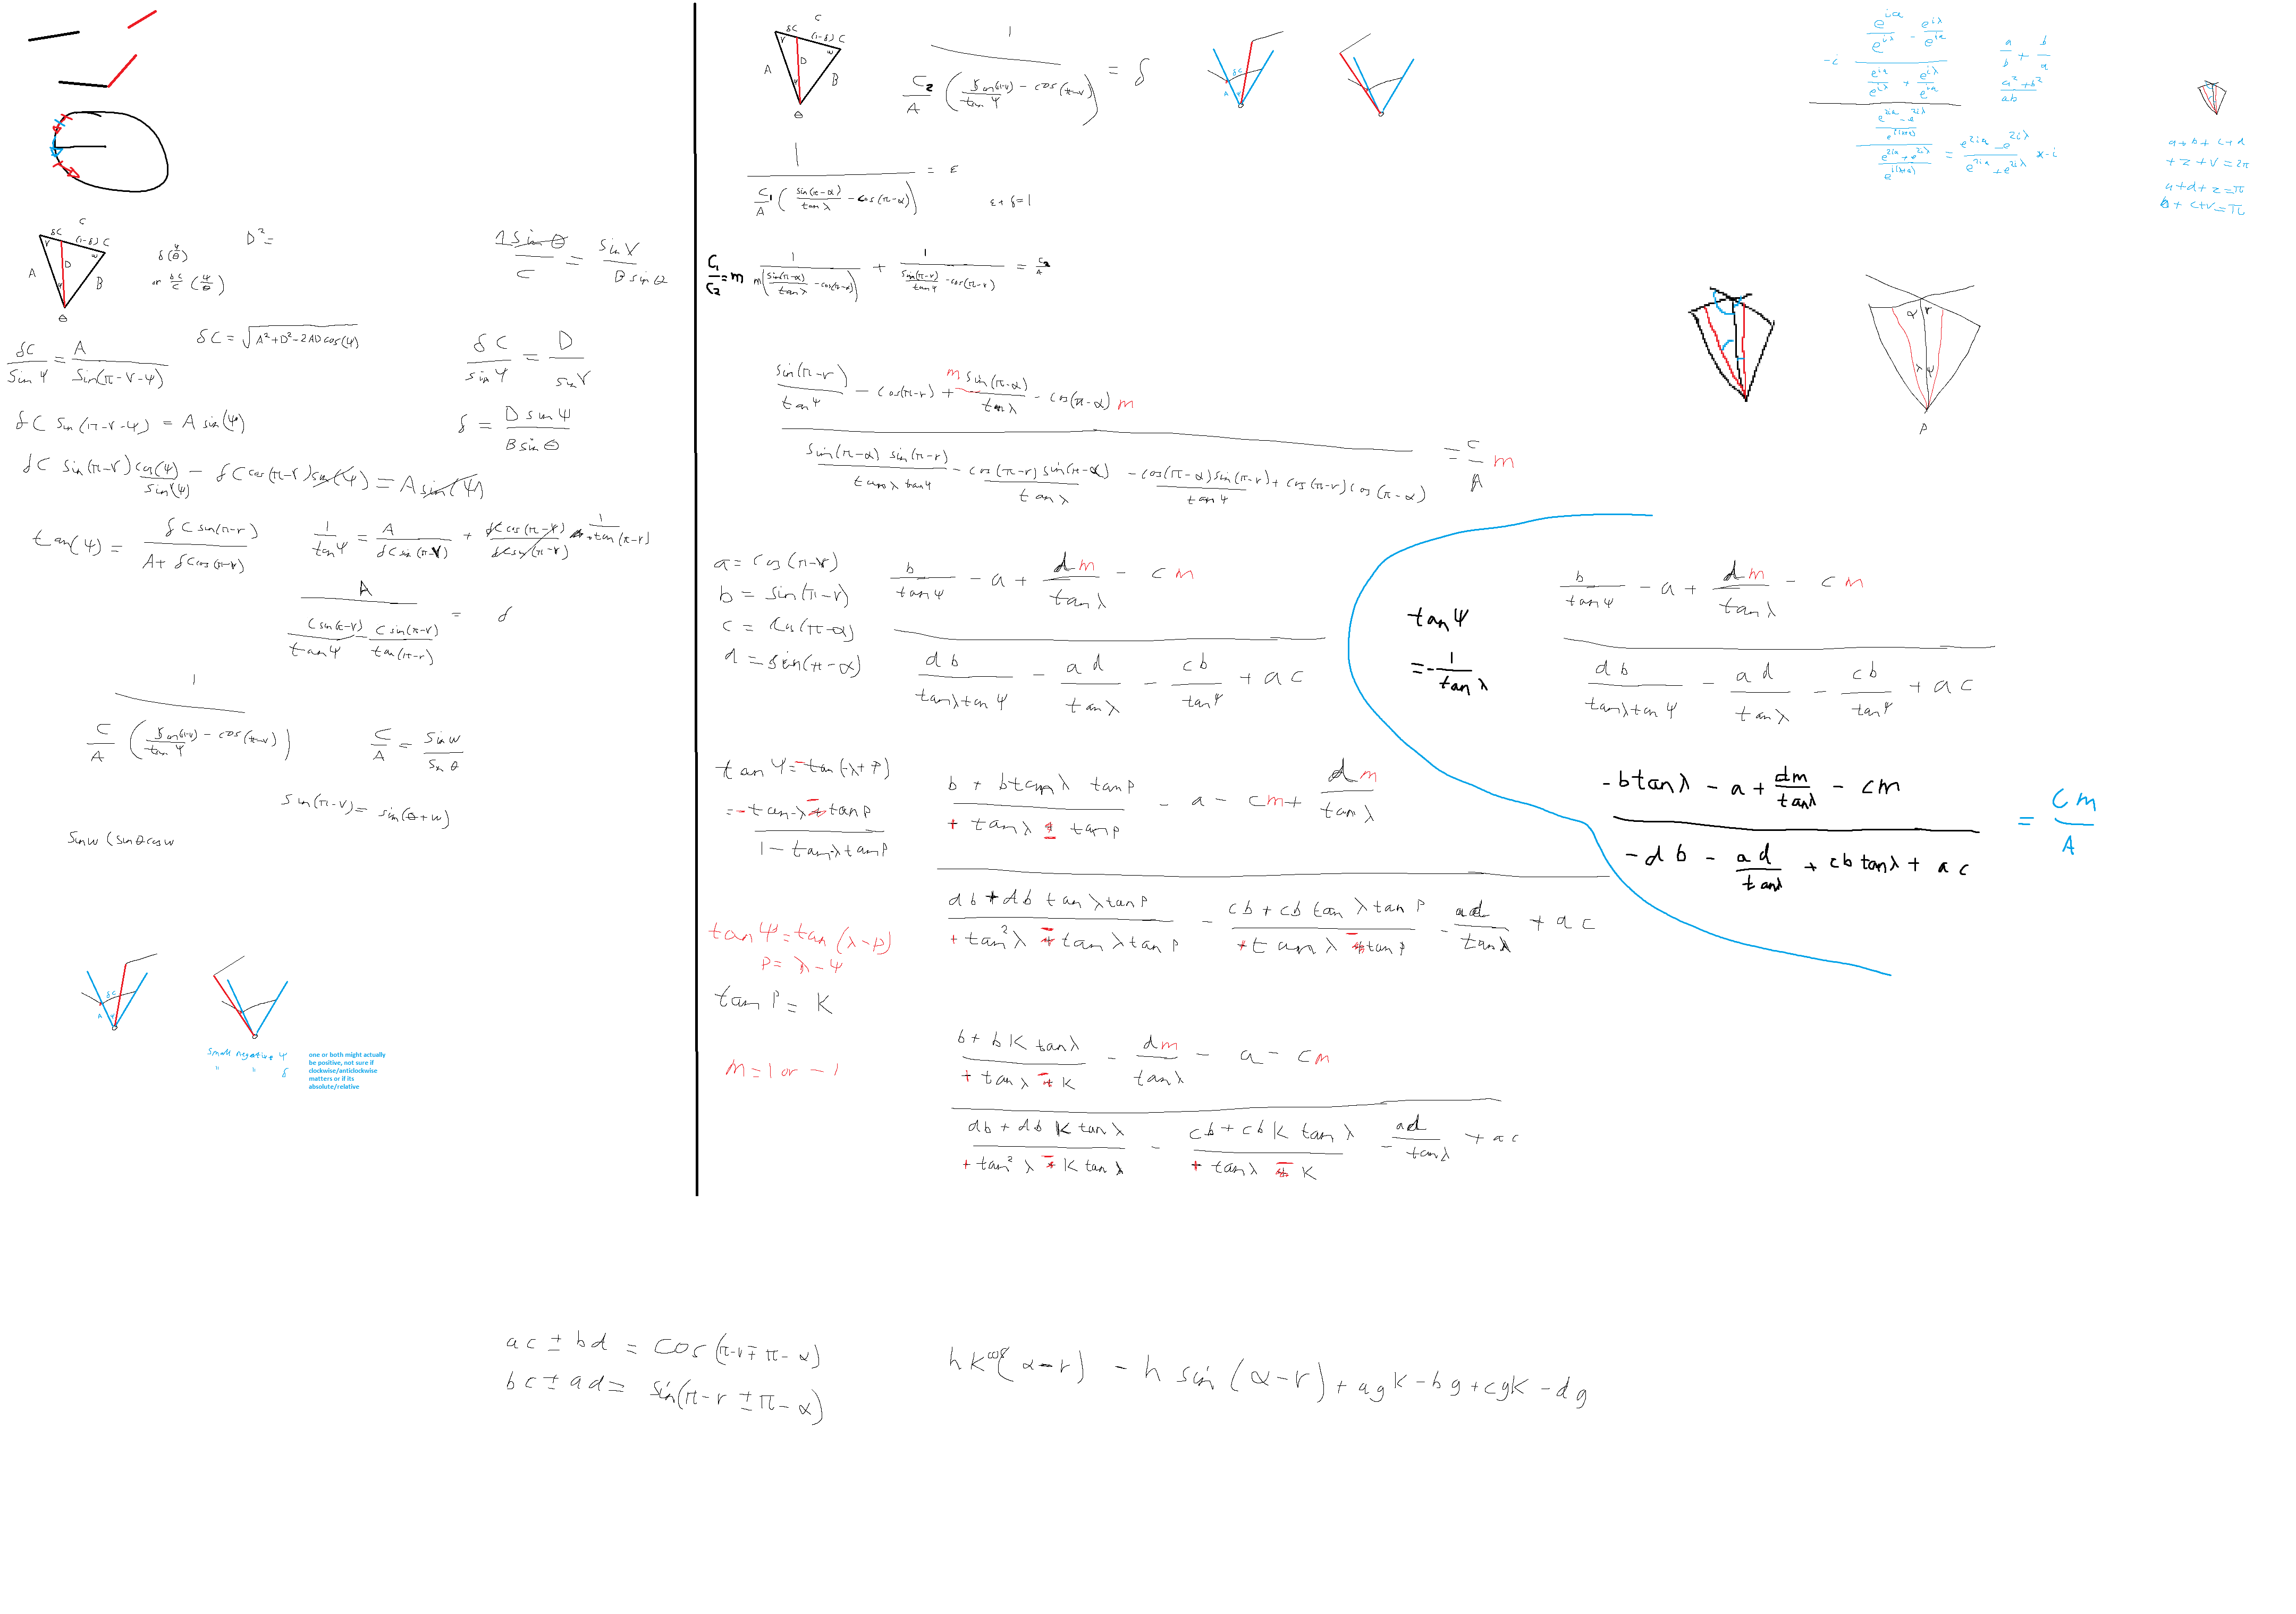 C
δC (1-δ) C
V w
A D B
Ψ
θ
δ(Ψ/θ)
or δC/C (Ψ/θ)
D² =
1 sin θ / C = sin V / B sin θ
δC = √(A² + D² - 2AD cos(Ψ))
δC / sin Ψ = A / sin(π-V-Ψ)
δC / sin Ψ = D / sin V
δC sin(π-V-Ψ) = A sin(Ψ)
δ = D sin Ψ / B sin θ
δC sin(π-V) cos(Ψ) / sin(Ψ) - δC cos(π-V) sin(Ψ) = A sin(Ψ)
tan(Ψ) = δC sin(π-r) / A + δC cos(π-V)
1 / tan Ψ = A / δC sin(π-V) + δC cos(π-Ψ) / δC sin(π-V) + 1 / tan(π-r)
A / (C sin(π-V) / tan Ψ - C sin(π-V) / tan(π-r)) = δ
1 / (C/A (sin(π-V) / tan Ψ - cos(π-V)))
C/A = sin w / sin θ
sin(π-V) = sin(θ+w)
sin w (sin θ cos w
δC
A Ψ
small negative Ψ
" " δ
one or both might actually
be positive, not sure if
clockwise/anticlockwise
matters or if its
absolute/relative
C
δC (1-δ) C
V w
A D B
Ψ
θ
1 / (C₂/A (sin(π-V) / tan Ψ - cos(π-V))) = δ
δC
A Ψ
1 / (C₁/A (sin(π-α) / tan λ - cos(π-α))) = ε
ε + δ = 1
C₁/C₂ = m
1 / m(sin(π-α) / tan λ - cos(π-α)) + 1 / (sin(π-r) / tan Ψ - cos(π-r)) = C₂/A
sin(π-r) / tan Ψ - cos(π-r) + m sin(π-α) / tan λ - cos(π-α) m
sin(π-α) sin(π-r) / tan λ tan Ψ - cos(π-r) sin(π-α) / tan λ - cos(π-α) sin(π-r) / tan Ψ + cos(π-r) cos(π-α)
= C/A m
a = cos(π-r)
b = sin(π-r)
c = cos(π-α)
d = sin(π-α)
b / tan Ψ - a + dm / tan λ - cm
db / tan λ tan Ψ - ad / tan λ - cb / tan Ψ + ac
tan Ψ = - tan(-λ+P)
= - tan-λ ∓ tan P / 1 - tan-λ tan P
b + b tan λ tan P / + tan λ ± tan P - a - cm + dm / tan λ
db + db tan λ tan P / + tan² λ ∓ tan λ tan P - cb + cb tan λ tan P / + tan λ ∓ tan P - ad / tan λ + ac
tan Ψ = tan(λ-P)
P = λ-Ψ
tan P = K
m = 1 or -1
b + bK tan λ / + tan λ ∓ K - dm / tan λ - a - cm
db + db K tan λ / + tan² λ ∓ K tan λ - cb + cb K tan λ / + tan λ ∓ K - ad / tan λ + ac
tan Ψ
= - 1 / tan λ
b / tan Ψ - a + dm / tan λ - cm
db / tan λ tan Ψ - ad / tan λ - cb / tan Ψ + ac
-b tan λ - a + dm / tan λ - cm
-db - ad / tan λ + cb tan λ + ac
= Cm / A
α r
λ Ψ
P
-i (e^iα / e^iλ - e^iλ / e^iα) / (e^iα / e^iλ + e^iλ / e^iα)
a/b + b/a
a² + b² / ab
(e^2iα - e^2iλ / e^i(λ+α)) / (e^2iα + e^2iλ / e^i(λ+α)) = e^2iα - e^2iλ / e^2iα + e^2iλ x-i
a + b + c + d
+ z + v = 2π
a + d + z = π
b + c + v = π
ac ± bd = cos(π-r ∓ π-α)
bc ± ad = sin(π-r ± π-α)
hK cos(α-r) - h sin(α-r) + agK - bg + cgK - dg